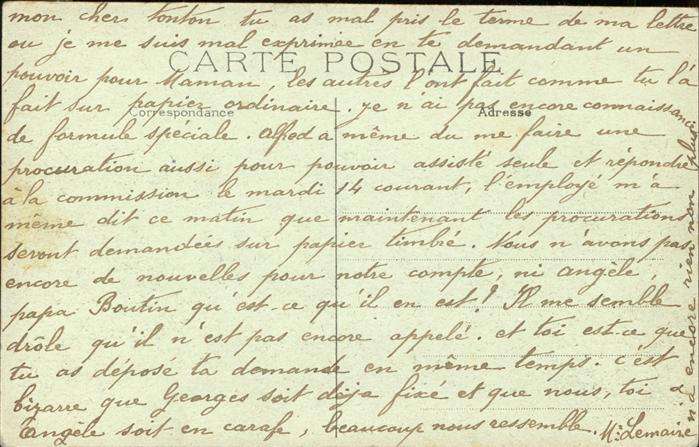 mon cher tonton tu as mal pris le terme de ma lettre
ou je me suis mal exprimée en te demandant un
CARTE POSTALE
pouvoir pour Maman, les autres l'ont fait comme tu l'a
fait sur papier ordinaire. je n'ai pas encore connaissance
Correspondance
Adresse
de formule spéciale. a même du me faire une
procuration aussi pour pouvoir assisté seule et répondre
à la commission le mardi 14 courant, l'employé m'a
même dit ce matin que maintenant les procurations
seront demandées sur papier timbré. Nous n'avons pas
encore de nouvelles pour notre compte, ni angèle,
papa Boutin qu'est-ce qu'il en est! Il me semble
drôle qu'il n'est pas encore appelé. et toi est-ce que
tu as déposé ta demande en même temps. c'est
bizarre que Georges soit déja fixé et que nous, toi
Angèle soit en carafe, beaucoup nous ressemble.
Lemaire
encore rien non plus